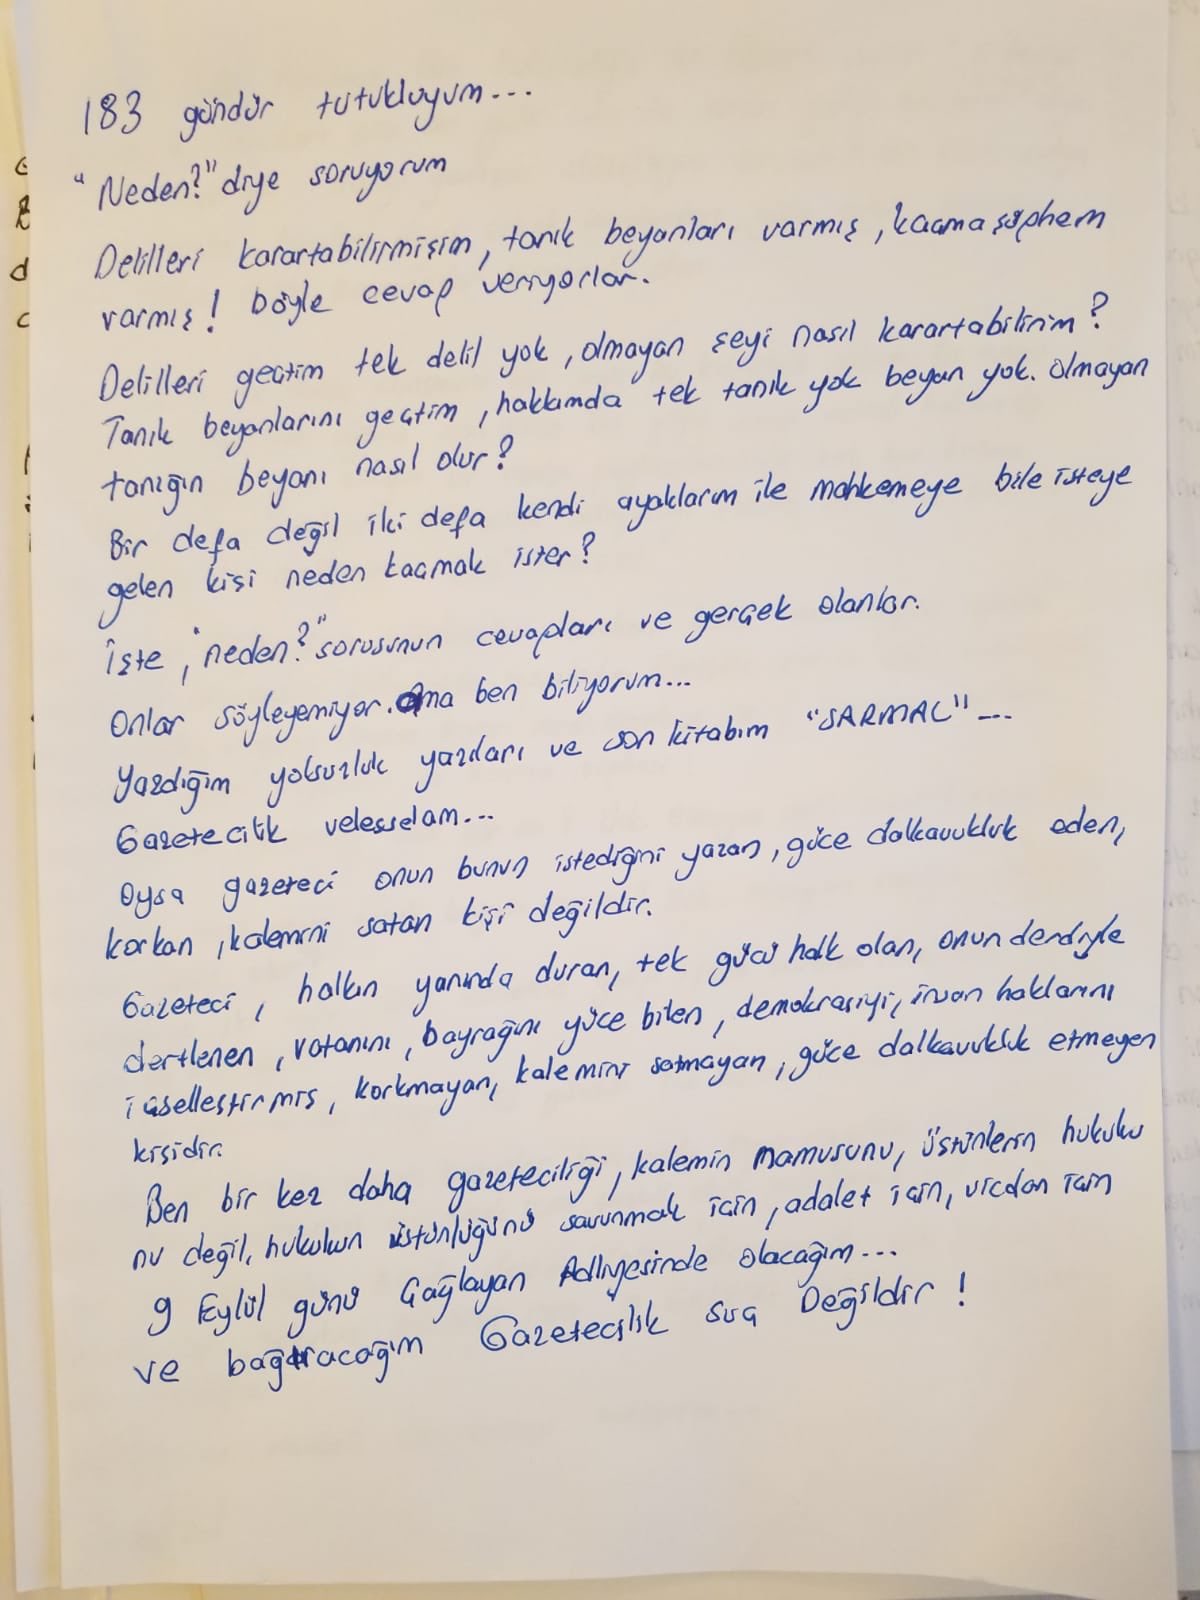 183 gündür tutukluyum...
"Neden?" diye soruyorum
Delilleri karartabilirmişim, tanık beyanları varmış, kaçma şüphem
varmış! Böyle cevap veriyorlar.
Delilleri geçtim tek delil yok, olmayan şeyi nasıl karartabilirim?
Tanık beyanlarını geçtim, hakkımda tek tanık yok beyan yok. Olmayan
tanığın beyanı nasıl olur?
Bir defa değil iki defa kendi ayaklarım ile mahkemeye bile isteye
gelen kişi neden kaçmak ister?
İşte, "neden?" sorusunun cevapları ve gerçek olanlar.
Onlar söyleyemiyor. Ama ben biliyorum...
Yazdığım yolsuzluk yazıları ve son kitabım "SARMAL"...
Gazetecilik velesselam...
Oysa gazeteci onun bunun istediğini yazan, güce dalkavukluk eden,
korkan, kalemini satan kişi değildir.
Gazeteci, halkın yanında duran, tek gücü halk olan, onun derdiyle
dertlenen, vatanını, bayrağını yüce bilen, demokrasiyi, insan haklarını
içselleştirmiş, korkmayan, kalemini satmayan, güce dalkavukluk etmeyen
kişidir.
Ben bir kez daha gazeteciliği, kalemin namusunu, üstünlerin hukuku
nu değil, hukukun üstünlüğünü savunmak için, adalet için, vicdan için
9 Eylül günü Çağlayan Adliyesinde olacağım...
ve bağıracağım Gazetecilik Suç Değildir!